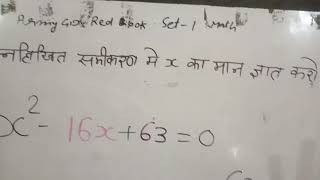 Red Book Set-1 Math
निम्नलिखित समीकरण मे x का मान ज्ञात करो
x² - 16x + 63 = 0